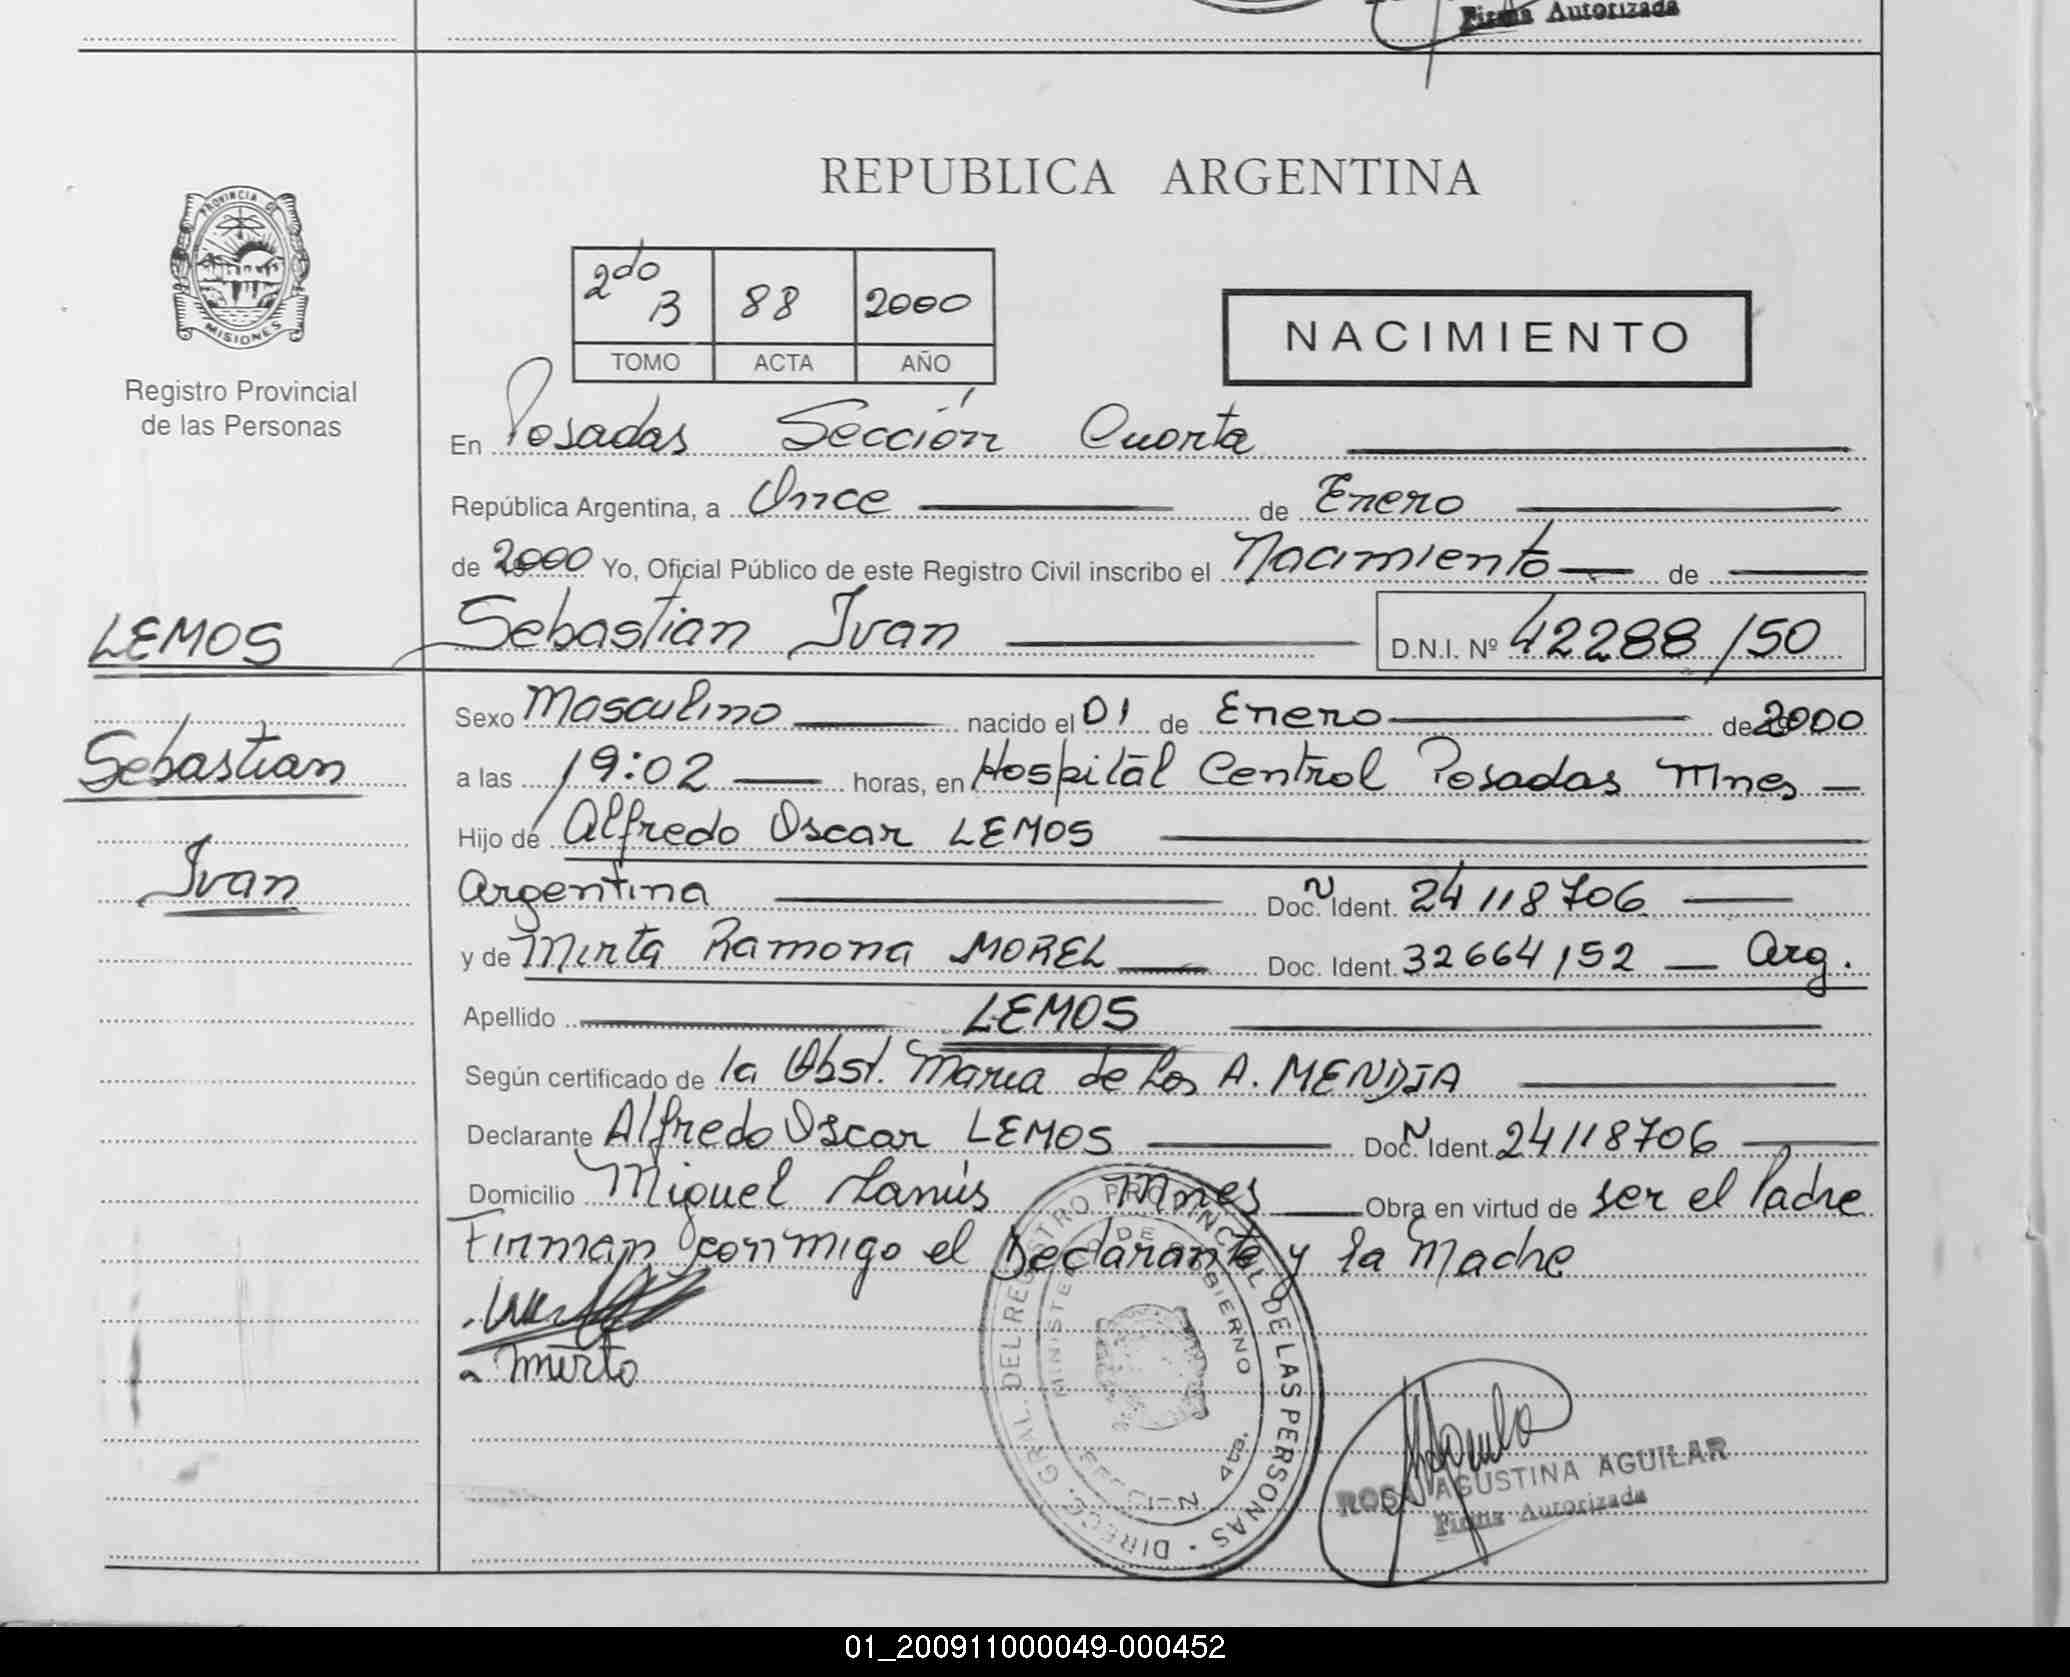 Firma Autorizada
REPUBLICA ARGENTINA
PROVINCIA DE
MISIONES
Registro Provincial
de las Personas
2do B 88 2000
TOMO ACTA AÑO
NACIMIENTO
En Posadas Sección Cuarta
República Argentina, a Once de Enero
de 2000 Yo, Oficial Público de este Registro Civil inscribo el Nacimiento de
LEMOS
Sebastian Ivan D.N.I. Nº 42288150
Sexo Masculino nacido el 01 de Enero de 2000
Sebastian
a las 19:02 horas, en Hospital Central Posadas Mnes
Hijo de Alfredo Oscar LEMOS
Ivan
Argentina Doc. N Ident. 24118706
y de Mirta Ramona MOREL Doc. Ident. 32664152 Arg.
Apellido LEMOS
Según certificado de la Obst. Maria de Los A. MENDIA
Declarante Alfredo Oscar LEMOS Doc. N Ident. 24118706
Domicilio Miguel Lanús Mnes Obra en virtud de ser el Padre
Firman conmigo el Declarante y la Madre
mirto
DIRECC. GRAL. DEL REGISTRO PROVINCIAL DE LAS PERSONAS
MINISTERIO DE GOBIERNO
SECCION 4ta.
ROSA AGUSTINA AGUILAR
Firma Autorizada
01_200911000049-000452